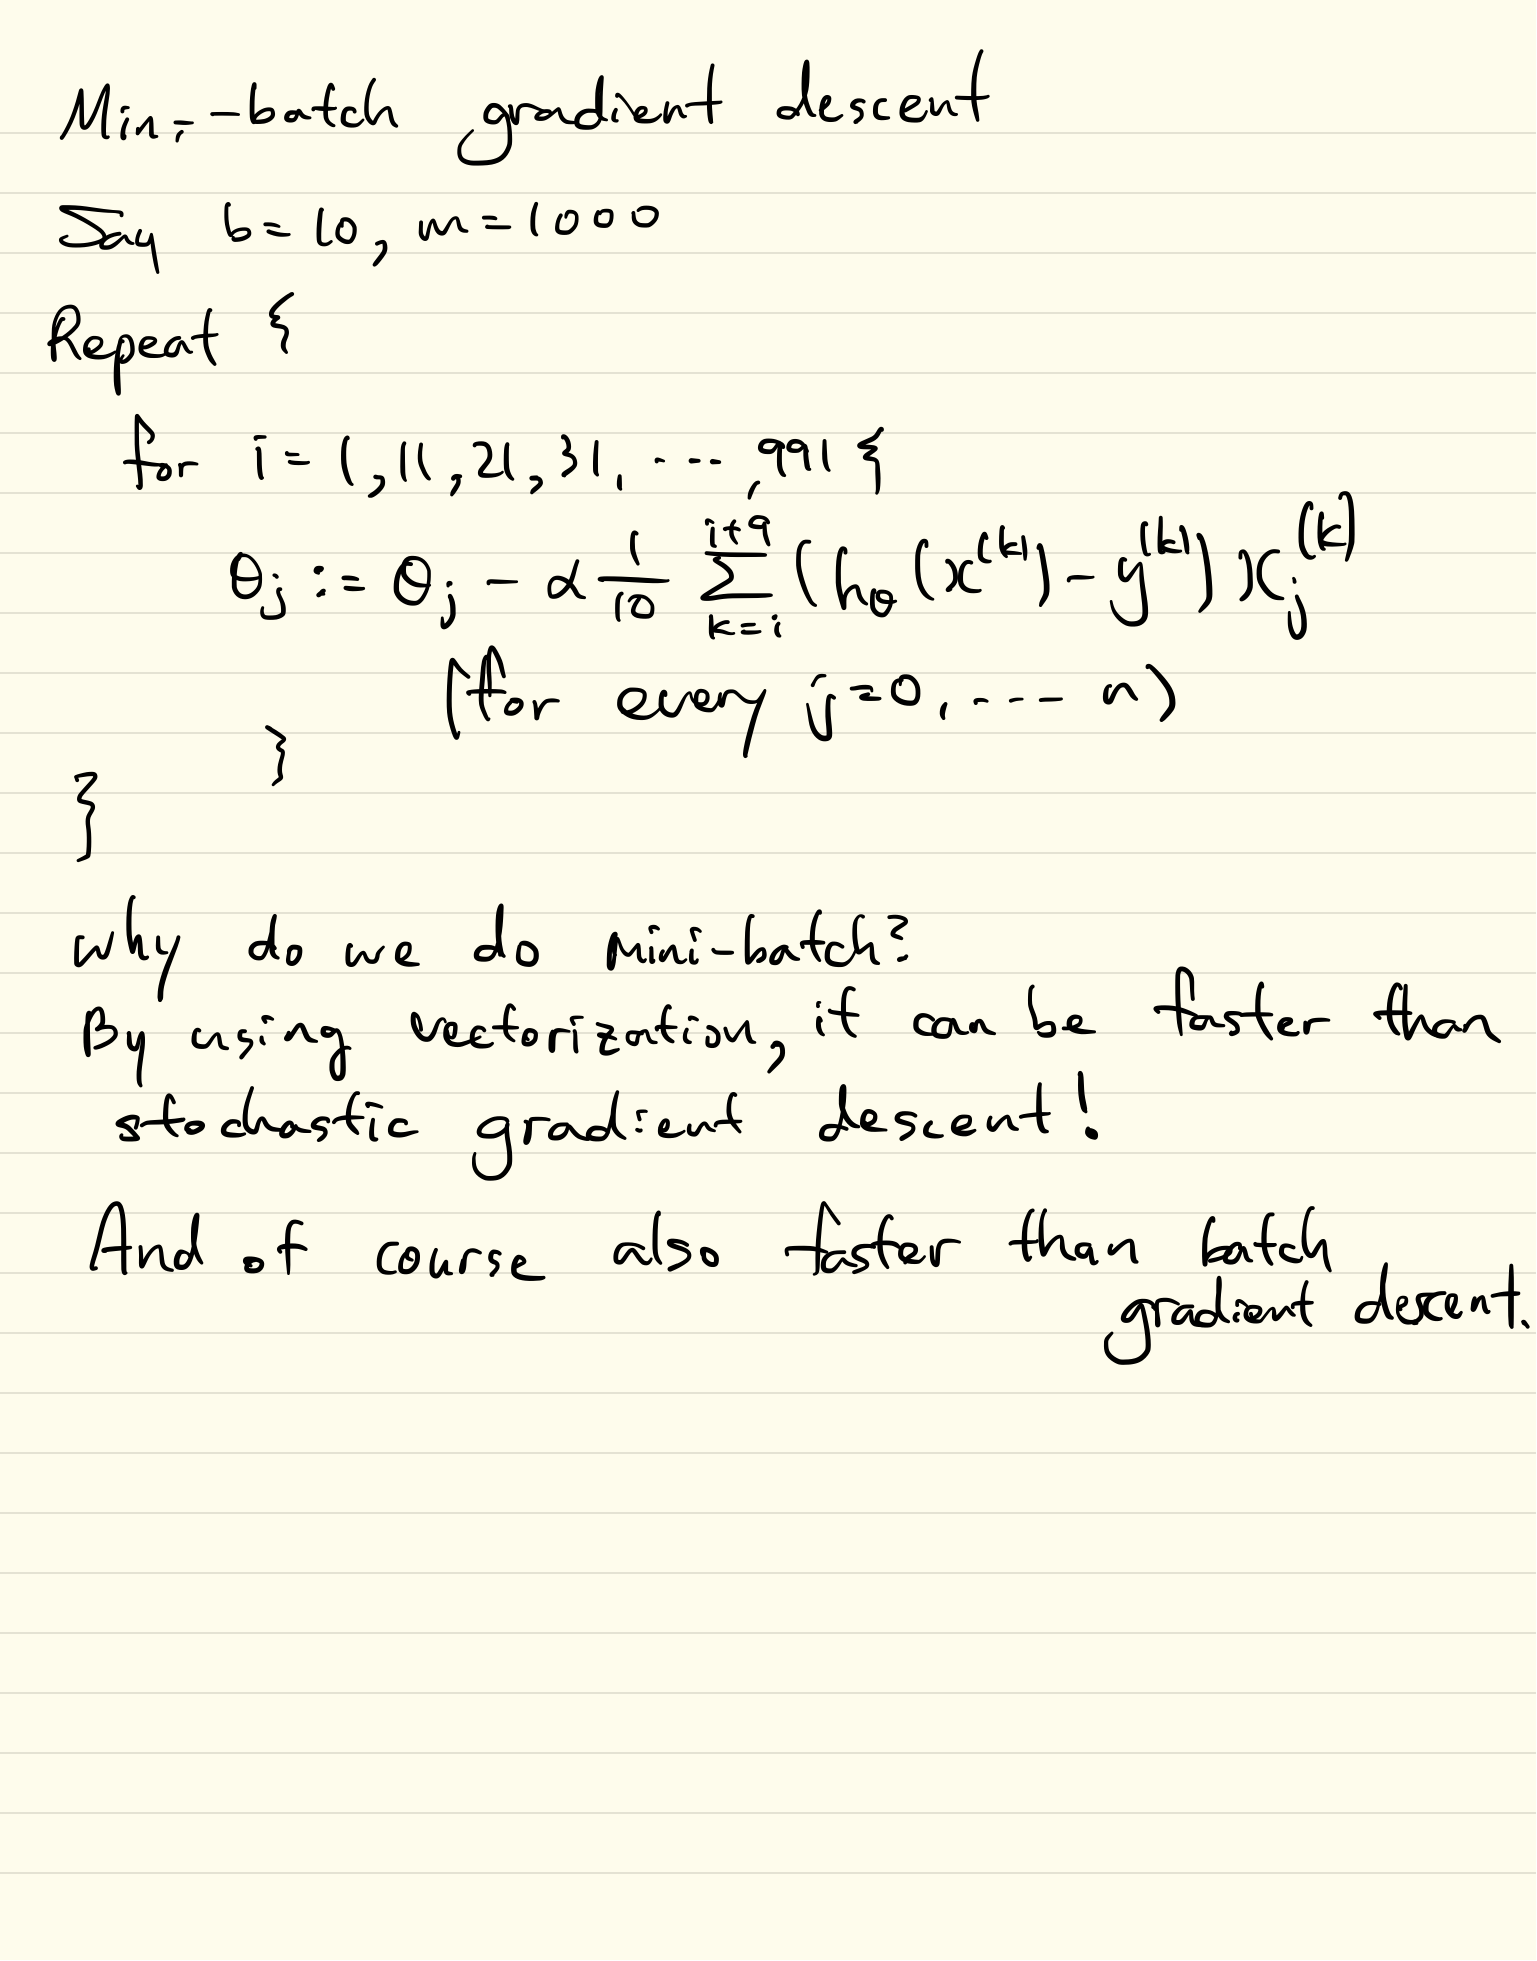 Mini-batch gradient descent
Say b = 10, m = 1000
Repeat {
for i = 1, 11, 21, 31, ..., 991 {
θj := θj - α 1/10 Σ_{k=i}^{i+9} (hθ(x^(k)) - y^(k)) xj^(k)
(for every j = 0, .... n)
}
}
why do we do mini-batch?
By using vectorization, it can be faster than
stochastic gradient descent!
And of course also faster than batch
gradient descent.